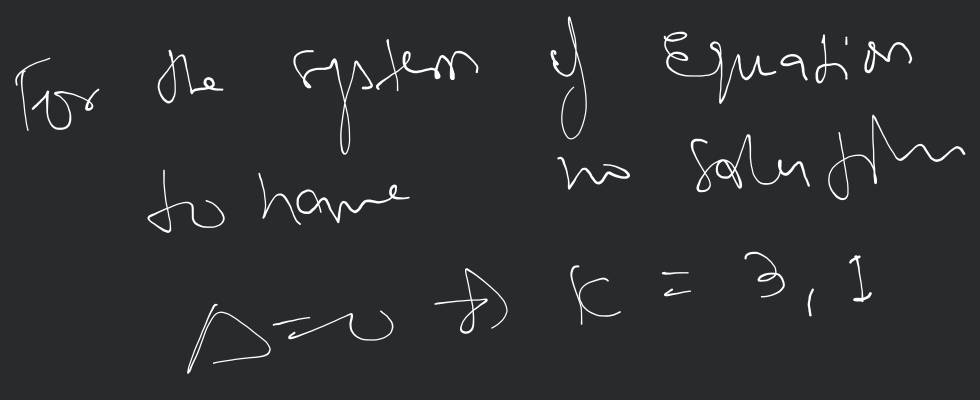 For the system of Equation
to have no solution
Δ=0 ⇒ K = 3, 1